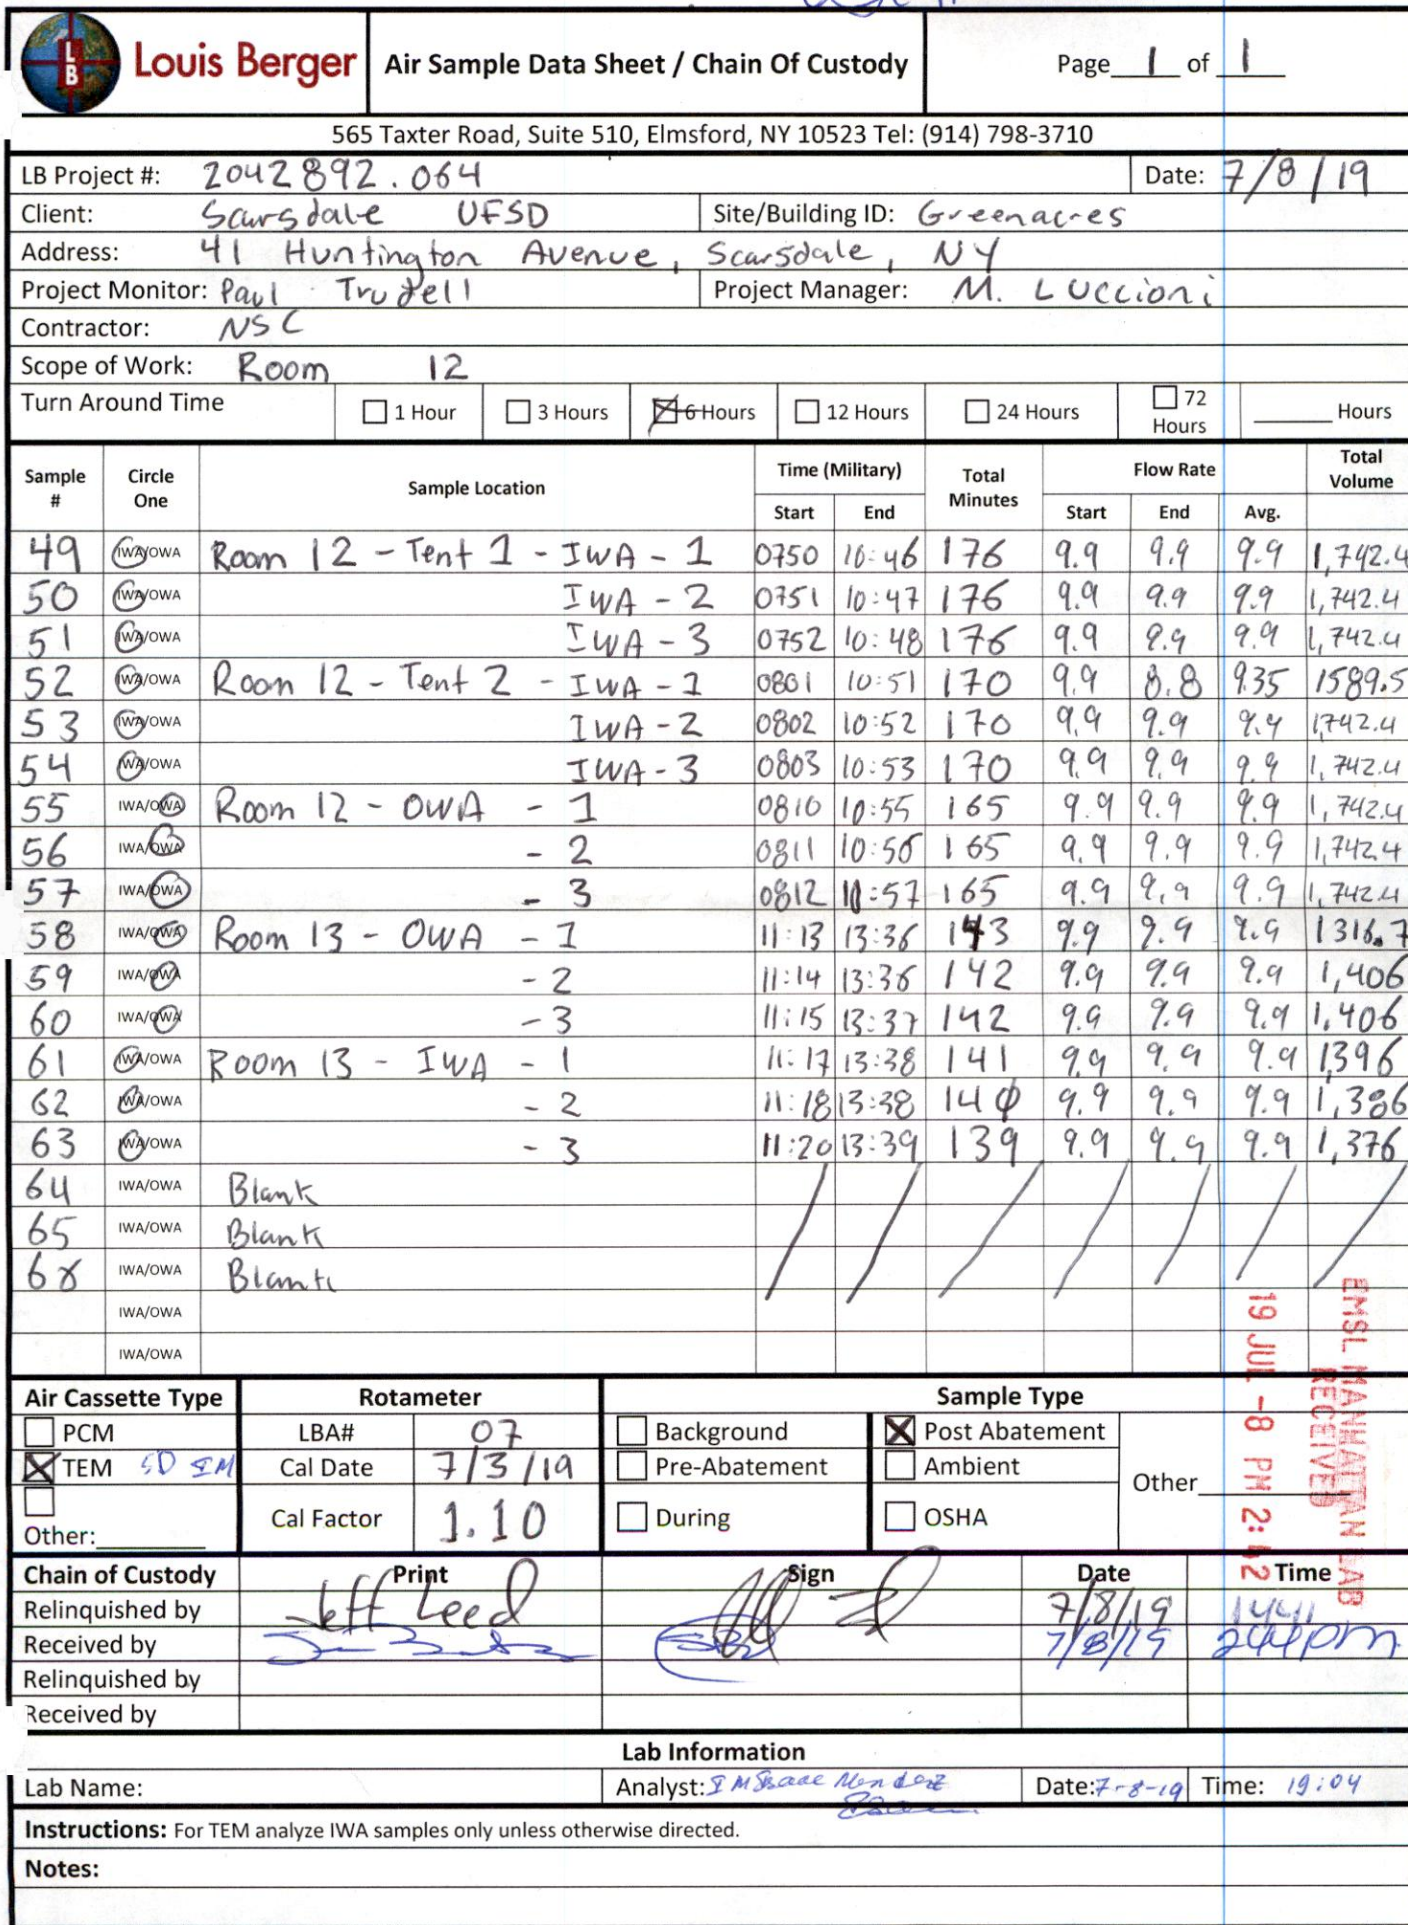 Louis Berger Air Sample Data Sheet / Chain Of Custody Page 1 of 1
565 Taxter Road, Suite 510, Elmsford, NY 10523 Tel: (914) 798-3710
LB Project #: 2042892.064 Date: 7/8/19
Client: Scarsdale UFSD Site/Building ID: Greenacres
Address: 41 Huntington Avenue, Scarsdale, NY
Project Monitor: Paul Trudell Project Manager: M. Luccioni
Contractor: NSC
Scope of Work: Room 12
Turn Around Time 1 Hour 3 Hours 6 Hours 12 Hours 24 Hours 72 Hours ______ Hours
Sample # Circle One Sample Location Time (Military) Total Minutes Flow Rate Total Volume
Start End Start End Avg.
49 IWA/OWA Room 12 - Tent 1 - IWA - 1 0750 10:46 176 9.9 9.9 9.9 1,742.4
50 IWA/OWA IWA - 2 0751 10:47 176 9.9 9.9 9.9 1,742.4
51 IWA/OWA IWA - 3 0752 10:48 176 9.9 9.9 9.9 1,742.4
52 IWA/OWA Room 12 - Tent 2 - IWA - 1 0801 10:51 170 9.9 8.8 9.35 1589.5
53 IWA/OWA IWA - 2 0802 10:52 170 9.9 9.9 9.9 1742.4
54 IWA/OWA IWA - 3 0803 10:53 170 9.9 9.9 9.9 1,742.4
55 IWA/OWA Room 12 - OWA - 1 0810 10:55 165 9.9 9.9 9.9 1,742.4
56 IWA/OWA - 2 0811 10:56 165 9.9 9.9 9.9 1,742.4
57 IWA/OWA - 3 0812 10:57 165 9.9 9.9 9.9 1,742.4
58 IWA/OWA Room 13 - OWA - 1 11:13 13:36 143 9.9 9.9 9.9 1316.7
59 IWA/OWA - 2 11:14 13:36 142 9.9 9.9 9.9 1,406
60 IWA/OWA - 3 11:15 13:37 142 9.9 9.9 9.9 1,406
61 IWA/OWA Room 13 - IWA - 1 11:17 13:38 141 9.9 9.9 9.9 1,396
62 IWA/OWA - 2 11:18 13:38 140 9.9 9.9 9.9 1,386
63 IWA/OWA - 3 11:20 13:39 139 9.9 9.9 9.9 1,376
64 IWA/OWA Blank
65 IWA/OWA Blank
66 IWA/OWA Blank
IWA/OWA
IWA/OWA
EMSL MANHATTAN LAB
RECEIVED
19 JUL -8 PM 2:42
Air Cassette Type Rotameter Sample Type
PCM LBA# 07 Background Post Abatement
TEM Cal Date 7/3/19 Pre-Abatement Ambient Other
Other: Cal Factor 1.10 During OSHA
Chain of Custody Print Sign Date Time
Relinquished by Jeff Leed 7/8/19 1441
Received by 7/8/19 244pm
Relinquished by
Received by
Lab Information
Lab Name: Analyst: IM Isaac Mendez Date: 7-8-19 Time: 19:04
Instructions: For TEM analyze IWA samples only unless otherwise directed.
Notes: